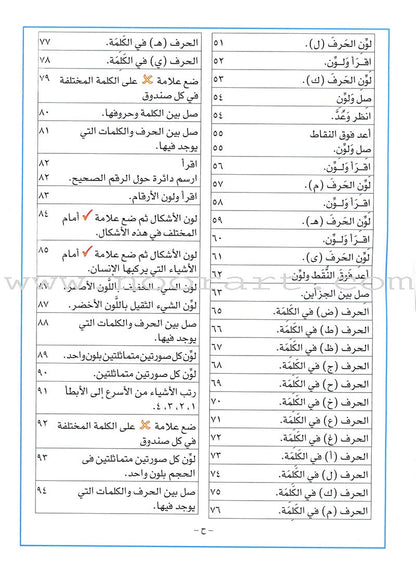 لوِّن الحَرفَ (ل). ٥١
اقـرَأ وَلـوِّن. ٥٢
لوِّن الحَرفَ (ك). ٥٣
صِل وَلوِّن ٥٤
انظر وَعُدَّ. ٥٤
أعد فوق النقاط ٥٥
صل وَلوِّن. ٥٥
اقـرَأ وَلـوِّن. ٥٦
لوِّن الحَرفَ (م). ٥٧
اقـرَأ وَلـوِّن. ٥٨
لوِّن الحَرفَ (هـ). ٥٩
اقـرَأ وَلـوِّن. ٦٠
لوِّن الحَرفَ (ى). ٦١
أعد فوقَ النُّقَط ولوِّن ٦٢
صل بين الجزأين. ٦٣
الحرف (ض) في الكَلِمَة. ٦٥
الحرف (ط) في الكَلِمَة. ٦٦
الحرف (ظ) في الكَلِمَة. ٦٧
الحرف (ج) في الكَلِمَة. ٦٨
الحرف (ح) في الكَلِمَة. ٦٩
الحرف (خ) في الكَلِمَة. ٧٠
الحرف (ع) في الكَلِمَة. ٧١
الحرف (غ) في الكَلِمَة. ٧٢
الحرف (أ) في الكَلِمَة. ٧٣
الحرف (ل) في الكَلِمَة. ٧٤
الحرف (ك) في الكَلِمَة. ٧٥
الحرف (م) في الكَلِمَة. ٧٦
الحرف (هـ) في الكَلِمَة. ٧٧
الحرف (ي) في الكَلِمَة. ٧٨
ضع علامة ✗ على الكلمة المختلفة ٧٩
في كل صندوق
صل بين الكلمة وحروفها. ٨٠
صل بين الحرف والكلمات التي ٨١
يوجد فيها.
اقرأ ٨٢
ارسم دائرة حول الرقم الصحيح. ٨٢
اقرأ ولون الأرقام. ٨٣
لون الأشكال ثم ضع علامة ✓ أمام ٨٤
المختلف في هذه الأشكال.
لون الأشكال ثم ضع علامة ✓ أمام ٨٥
الأشياء التي يركبها الإنسان.
لون الشيء الخفيف باللَّون الأصفر. ٨٦
لوِّن الشيء الثقيل باللَّون الأخضر. ٨٧
صل بين الحرف والكلمات التي ٨٨
يوجد فيها.
لوِّن كل صورتين متماثلتين بلون واحد. ٨٩
لوِّن كل صورتين متماثلتين. ٩٠
رتب الأشياء من الأسرع إلى الأبطأ ٩١
١، ٢، ٣، ٤.
ضع علامة ✗ على الكلمة المختلفة ٩٢
في كل صندوق
لوِّن كل صورتين متماثلتين فى ٩٣
الحجم بلون واحد.
صل بين الحرف والكلمات التي ٩٤
يوجد فيها.
- ح -